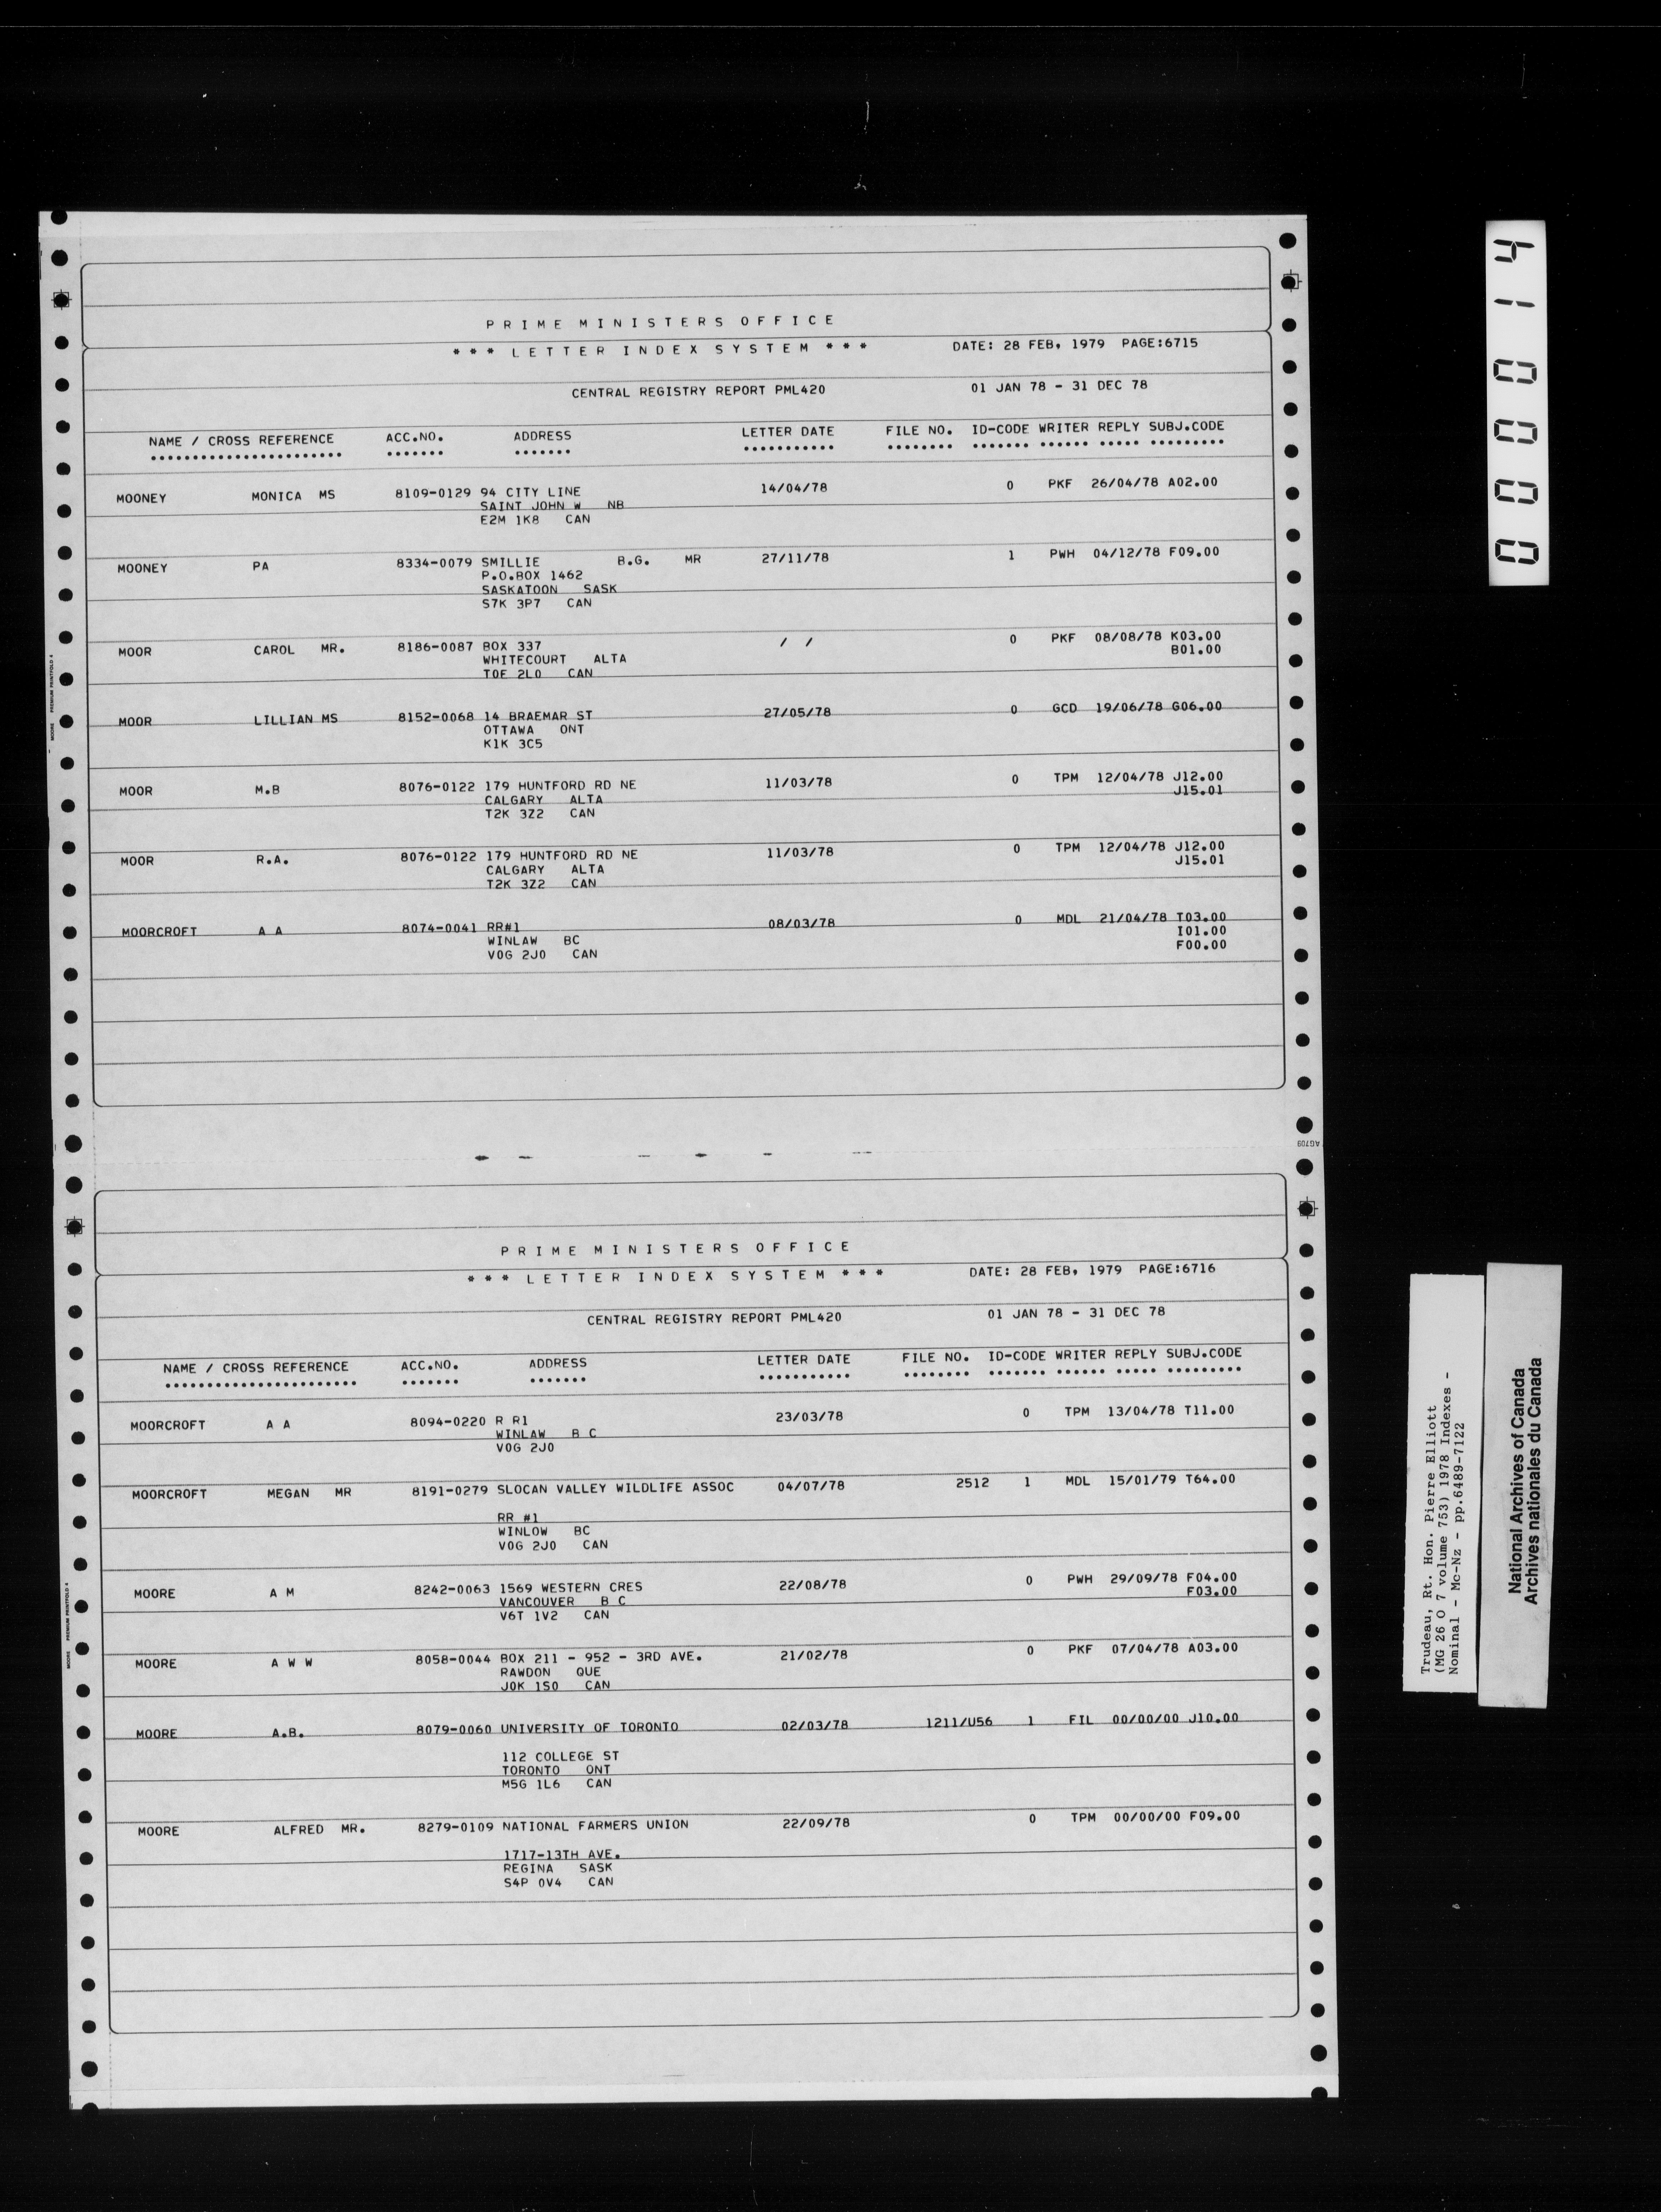 P R I M E  M I N I S T E R S  O F F I C E
* * *  L E T T E R  I N D E X  S Y S T E M  * * *  DATE: 28 FEB, 1979  PAGE:6715
CENTRAL REGISTRY REPORT PML420  01 JAN 78 - 31 DEC 78
NAME / CROSS REFERENCE  ACC.NO.  ADDRESS  LETTER DATE  FILE NO.  ID-CODE WRITER REPLY SUBJ.CODE
MOONEY  MONICA  MS  8109-0129 94 CITY LINE  14/04/78  0  PKF  26/04/78 A02.00
SAINT JOHN W  NB
E2M 1K8  CAN
MOONEY  PA  8334-0079 SMILLIE  B.G.  MR  27/11/78  1  PWH  04/12/78 F09.00
P.O.BOX 1462
SASKATOON  SASK
S7K 3P7  CAN
MOOR  CAROL  MR.  8186-0087 BOX 337  /  /  0  PKF  08/08/78 K03.00
WHITECOURT  ALTA  B01.00
T0E 2L0  CAN
MOOR  LILLIAN MS  8152-0068 14 BRAEMAR ST  27/05/78  0  GCD  19/06/78 G06.00
OTTAWA  ONT
K1K 3C5
MOOR  M.B  8076-0122 179 HUNTFORD RD NE  11/03/78  0  TPM  12/04/78 J12.00
CALGARY  ALTA  J15.01
T2K 3Z2  CAN
MOOR  R.A.  8076-0122 179 HUNTFORD RD NE  11/03/78  0  TPM  12/04/78 J12.00
CALGARY  ALTA  J15.01
T2K 3Z2  CAN
MOORCROFT  A A  8074-0041 RR#1  08/03/78  0  MDL  21/04/78 T03.00
WINLAW  BC  I01.00
V0G 2J0  CAN  F00.00
AG709
P R I M E  M I N I S T E R S  O F F I C E
* * *  L E T T E R  I N D E X  S Y S T E M  * * *  DATE: 28 FEB, 1979  PAGE:6716
CENTRAL REGISTRY REPORT PML420  01 JAN 78 - 31 DEC 78
NAME / CROSS REFERENCE  ACC.NO.  ADDRESS  LETTER DATE  FILE NO.  ID-CODE WRITER REPLY SUBJ.CODE
MOORCROFT  A A  8094-0220 R R1  23/03/78  0  TPM  13/04/78 T11.00
WINLAW  B C
V0G 2J0
MOORCROFT  MEGAN  MR  8191-0279 SLOCAN VALLEY WILDLIFE ASSOC  04/07/78  2512  1  MDL  15/01/79 T64.00
RR #1
WINLOW  BC
V0G 2J0  CAN
MOORE  A M  8242-0063 1569 WESTERN CRES  22/08/78  0  PWH  29/09/78 F04.00
VANCOUVER  B C  F03.00
V6T 1V2  CAN
MOORE  A W W  8058-0044 BOX 211 - 952 - 3RD AVE.  21/02/78  0  PKF  07/04/78 A03.00
RAWDON  QUE
J0K 1S0  CAN
MOORE  A.B.  8079-0060 UNIVERSITY OF TORONTO  02/03/78  1211/U56  1  FIL  00/00/00 J10.00
112 COLLEGE ST
TORONTO  ONT
M5G 1L6  CAN
MOORE  ALFRED  MR.  8279-0109 NATIONAL FARMERS UNION  22/09/78  0  TPM  00/00/00 F09.00
1717-13TH AVE.
REGINA  SASK
S4P 0V4  CAN
MOORE  PREMIUM PRINTFOLD 4
MOORE  PREMIUM PRINTFOLD 4
000014
Trudeau, Rt. Hon. Pierre Elliott
(MG 26 O 7 volume 753) 1978 Indexes -
Nominal - Mc-Nz - pp.6489-7122
National Archives of Canada
Archives nationales du Canada